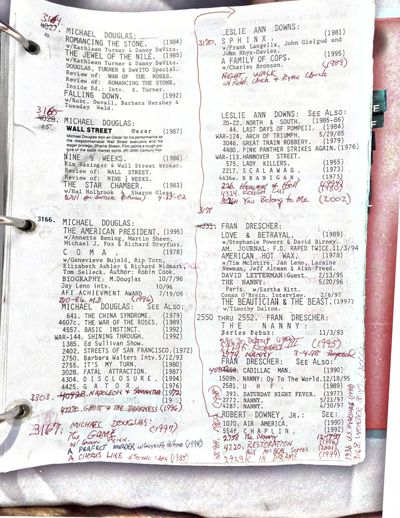 3164
MICHAEL DOUGLAS:
ROMANCING THE STONE. (1984)
w/Kathleen Turner & Danny DeVito.
THE JEWEL OF THE NILE. (1985)
w/Kathleen Turner & Danny DeVito.
DOUGLAS, TURNER & DeVITO Special.
Review of: WAR OF THE ROSES.
Review of: ROMANCING THE STONE.
Inside Ed.: Intv. K. Turner.
FALLING DOWN. (1992)
w/Robt. Duvall, Barbara Hershey &
Tuesday Weld.
3165
4028.
MICHAEL DOUGLAS:
WALL STREET Oscar (1987)
NINE ½ WEEKS. (1986)
Kim Basinger & Wall Street broker.
Review of: WALL STREET.
Review of: NINE ½ WEEKS.
THE STAR CHAMBER. (1983)
w/Hal Holbrook & Sharon Gless.
3166.
MICHAEL DOUGLAS:
THE AMERICAN PRESIDENT. (1995)
w/Annette Bening, Martin Sheen,
Michael J. Fox & Richard Dreyfuss.
C O M A. (1978)
w/Genevieve Bujold, Rip Torn,
Elizabeth Ashley & Richard Widmark,
Tom Selleck. Author: Robin Cook.
BIOGRAPHY: M.Douglas 10/7/96
Jay Leno intv. 10/96
AFI ACHIEVMENT AWARD 7/19/09
MICHAEL DOUGLAS: See Also
641. THE CHINA SYNDROME. (1979)
4607c. THE WAR OF THE ROSES. (1989)
4557. BASIC INSTINCT. (1992)
WAR-144. SHINING THROUGH. (1992)
1385. Ed Sullivan Show.
2402. STREETS OF SAN FRANCISCO. (1972)
2750. Barbara Walters Intv. 5/12/93
2755. IT'S MY TURN. (1980)
3028. FATAL ATTRACTION. (1987)
4304. D I S C L O S U R E. (1994)
4425. G A T O R . (1976)
2803. NAPOLEON & SAMANTHA 1972
4228. GHOST & THE DARKNESS (1996)
3167. MICHAEL DOUGLAS' (1997)
THE GAME
A PERFECT MURDER w/Gwyneth Paltrow (1998)
A CHORUS LINE (1985)
3170.
LESLIE ANN DOWNS:
S P H I N X. (1981)
w/Frank Langella, John Gielgud and
John Rhys-Davies.
A FAMILY OF COPS. (1995)
w/Charles Bronson.
NIGHT WALK (1989)
w/Robt. Urich &
LESLIE ANN DOWNS: See Also:
20-22. NORTH & SOUTH. (1985-86)
44. LAST DAYS OF POMPEII. (1984)
WAR-124. ARCH OF TRIUMPH. 5/29/85
3046. GREAT TRAIN ROBBERY. (1979)
4480. PINK PANTHER STRIKES AGAIN. (1976)
WAR-113. HANNOVER STREET.
575. LADY KILLERS. (1955)
2217. S C A L A W A G. (1973)
4636a. B R A N I G A N. (1975)
You Belong to Me (2002)
3171
FRAN DRESCHER:
LOVE & BETRAYAL. (1989)
w/Stephanie Powers & David Birney.
AM. JOURNAL: F.D. RAPED TWICE. 11/3/94
AMERICAN HOT WAX. (1978)
w/Tim McIntire, Jay Leno, Laraine
Newman, Jeff Altman & Alan Freed.
DAVID LETTERMAN: Guest. 2/13/95
THE NANNY: 5/20/96
Paris. w/Eartha Kitt.
Conan O'Brein, Interview. 2/6/97
THE BEAUTICIAN & THE BEAST. (1997)
w/Timothy Dalton.
2550 THRU 2552. FRAN DRESCHER:
T H E N A N N Y:
Series Debut: 11/3/93
FRAN DRESCHER: See Also:
CADILLAC MAN. (1990)
1509h. NANNY: Oy To The World. 12/18/95
2581. U H F (1989)
393. SATURDAY NIGHT FEVER. (1977)
2772. NANNY. 5/21/97
4287. NANNY. 6/30/97
ROBERT DOWNEY, Jr.: SEE:
1070. AIR AMERICA. (1990)
554f. CHAPLIN. (1992)
4320. RESTORATION (1995)
2939K IN DREAMS (1999)